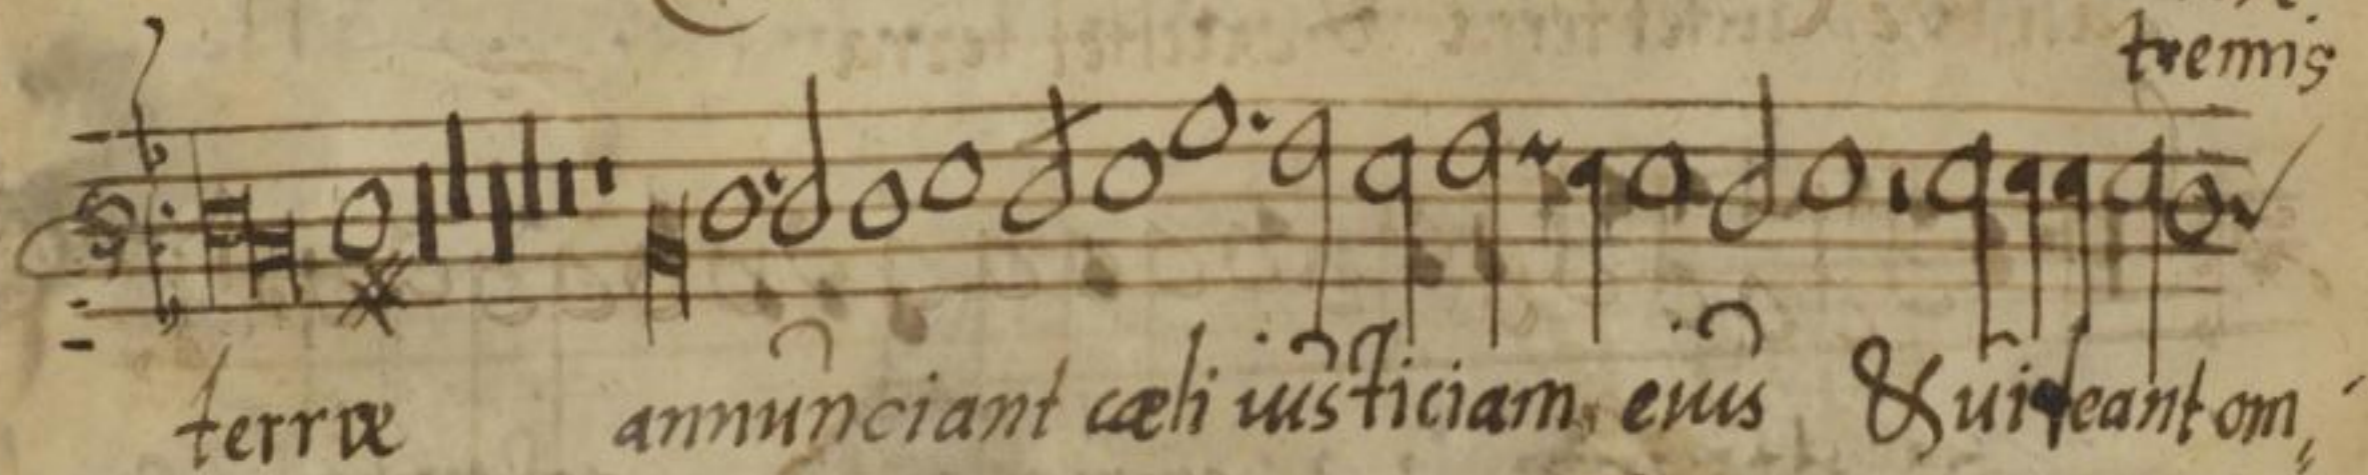 tremis
terræ annunciant cæli iusticiam eius & uideant om